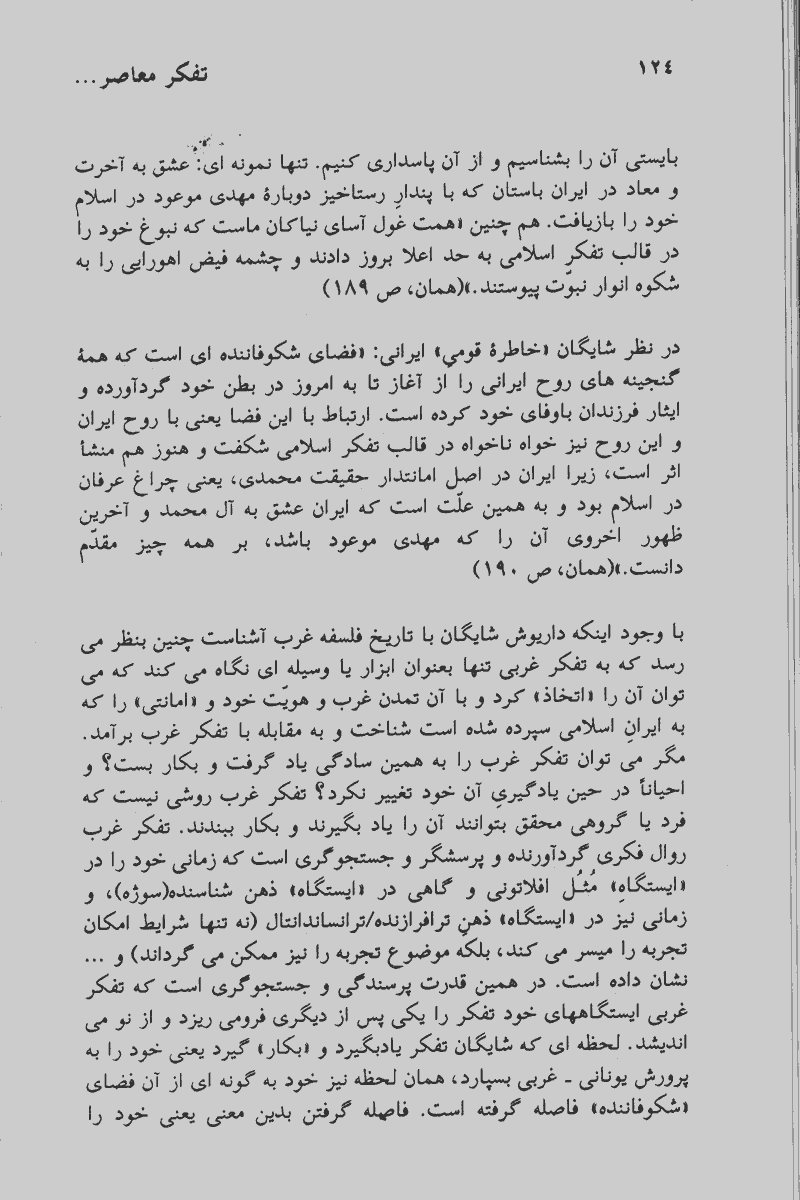 ۱۲٤
تفکر معاصر...
بایستی آن را بشناسیم و از آن پاسداری کنیم. تنها نمونه ای: عشق به آخرت
و معاد در ایران باستان که با پندارِ رستاخیز دوبارهٔ مهدی موعود در اسلام
خود را بازیافت. هم چنین «همت غول آسای نیاکان ماست که نبوغ خود را
در قالب تفکر اسلامی به حد اعلا بروز دادند و چشمه فیض اهورایی را به
شکوه انوار نبوّت پیوستند.»(همان، ص ۱۸۹)
در نظر شایگان «خاطرهٔ قومیِ» ایرانی: «فضای شکوفاننده ای است که همهٔ
گنجینه های روح ایرانی را از آغاز تا به امروز در بطن خود گردآورده و
ایثار فرزندان باوفای خود کرده است. ارتباط با این فضا یعنی با روح ایران
و این روح نیز خواه ناخواه در قالب تفکر اسلامی شکفت و هنوز هم منشأ
اثر است، زیرا ایران در اصل امانتدار حقیقت محمدی، یعنی چراغ عرفان
در اسلام بود و به همین علّت است که ایران عشق به آل محمد و آخرین
ظهور اخروی آن را که مهدی موعود باشد، بر همه چیز مقدّم
دانست.»(همان، ص ۱۹۰)
با وجود اینکه داریوش شایگان با تاریخ فلسفه غرب آشناست چنین بنظر می
رسد که به تفکر غربی تنها بعنوان ابزار یا وسیله ای نگاه می کند که می
توان آن را «اتخاذ» کرد و با آن تمدن غرب و هویّت خود و «امانتی» را که
به ایرانِ اسلامی سپرده شده است شناخت و به مقابله با تفکر غرب برآمد.
مگر می توان تفکر غرب را به همین سادگی یاد گرفت و بکار بست؟ و
احیاناً در حین یادگیریِ آن خود تغییر نکرد؟ تفکر غرب روشی نیست که
فرد یا گروهی محقق بتوانند آن را یاد بگیرند و بکار ببندند. تفکر غرب
روال فکری گردآورنده و پرسشگر و جستجوگری است که زمانی خود را در
«ایستگاهِ» مُثُل افلاتونی و گاهی در «ایستگاه» ذهن شناسنده(سوژه)، و
زمانی نیز در «ایستگاه» ذهنِ ترافرازنده/ترانساندانتال (نه تنها شرایط امکان
تجربه را میسر می کند، بلکه موضوع تجربه را نیز ممکن می گرداند) و ...
نشان داده است. در همین قدرت پرسندگی و جستجوگری است که تفکر
غربی ایستگاههای خود تفکر را یکی پس از دیگری فرومی ریزد و از نو می
اندیشد. لحظه ای که شایگان تفکر یادبگیرد و «بکار» گیرد یعنی خود را به
پرورش یونانی ـ غربی بسپارد، همان لحظه نیز خود به گونه ای از آن فضای
«شکوفاننده» فاصله گرفته است. فاصله گرفتن بدین معنی یعنی خود را